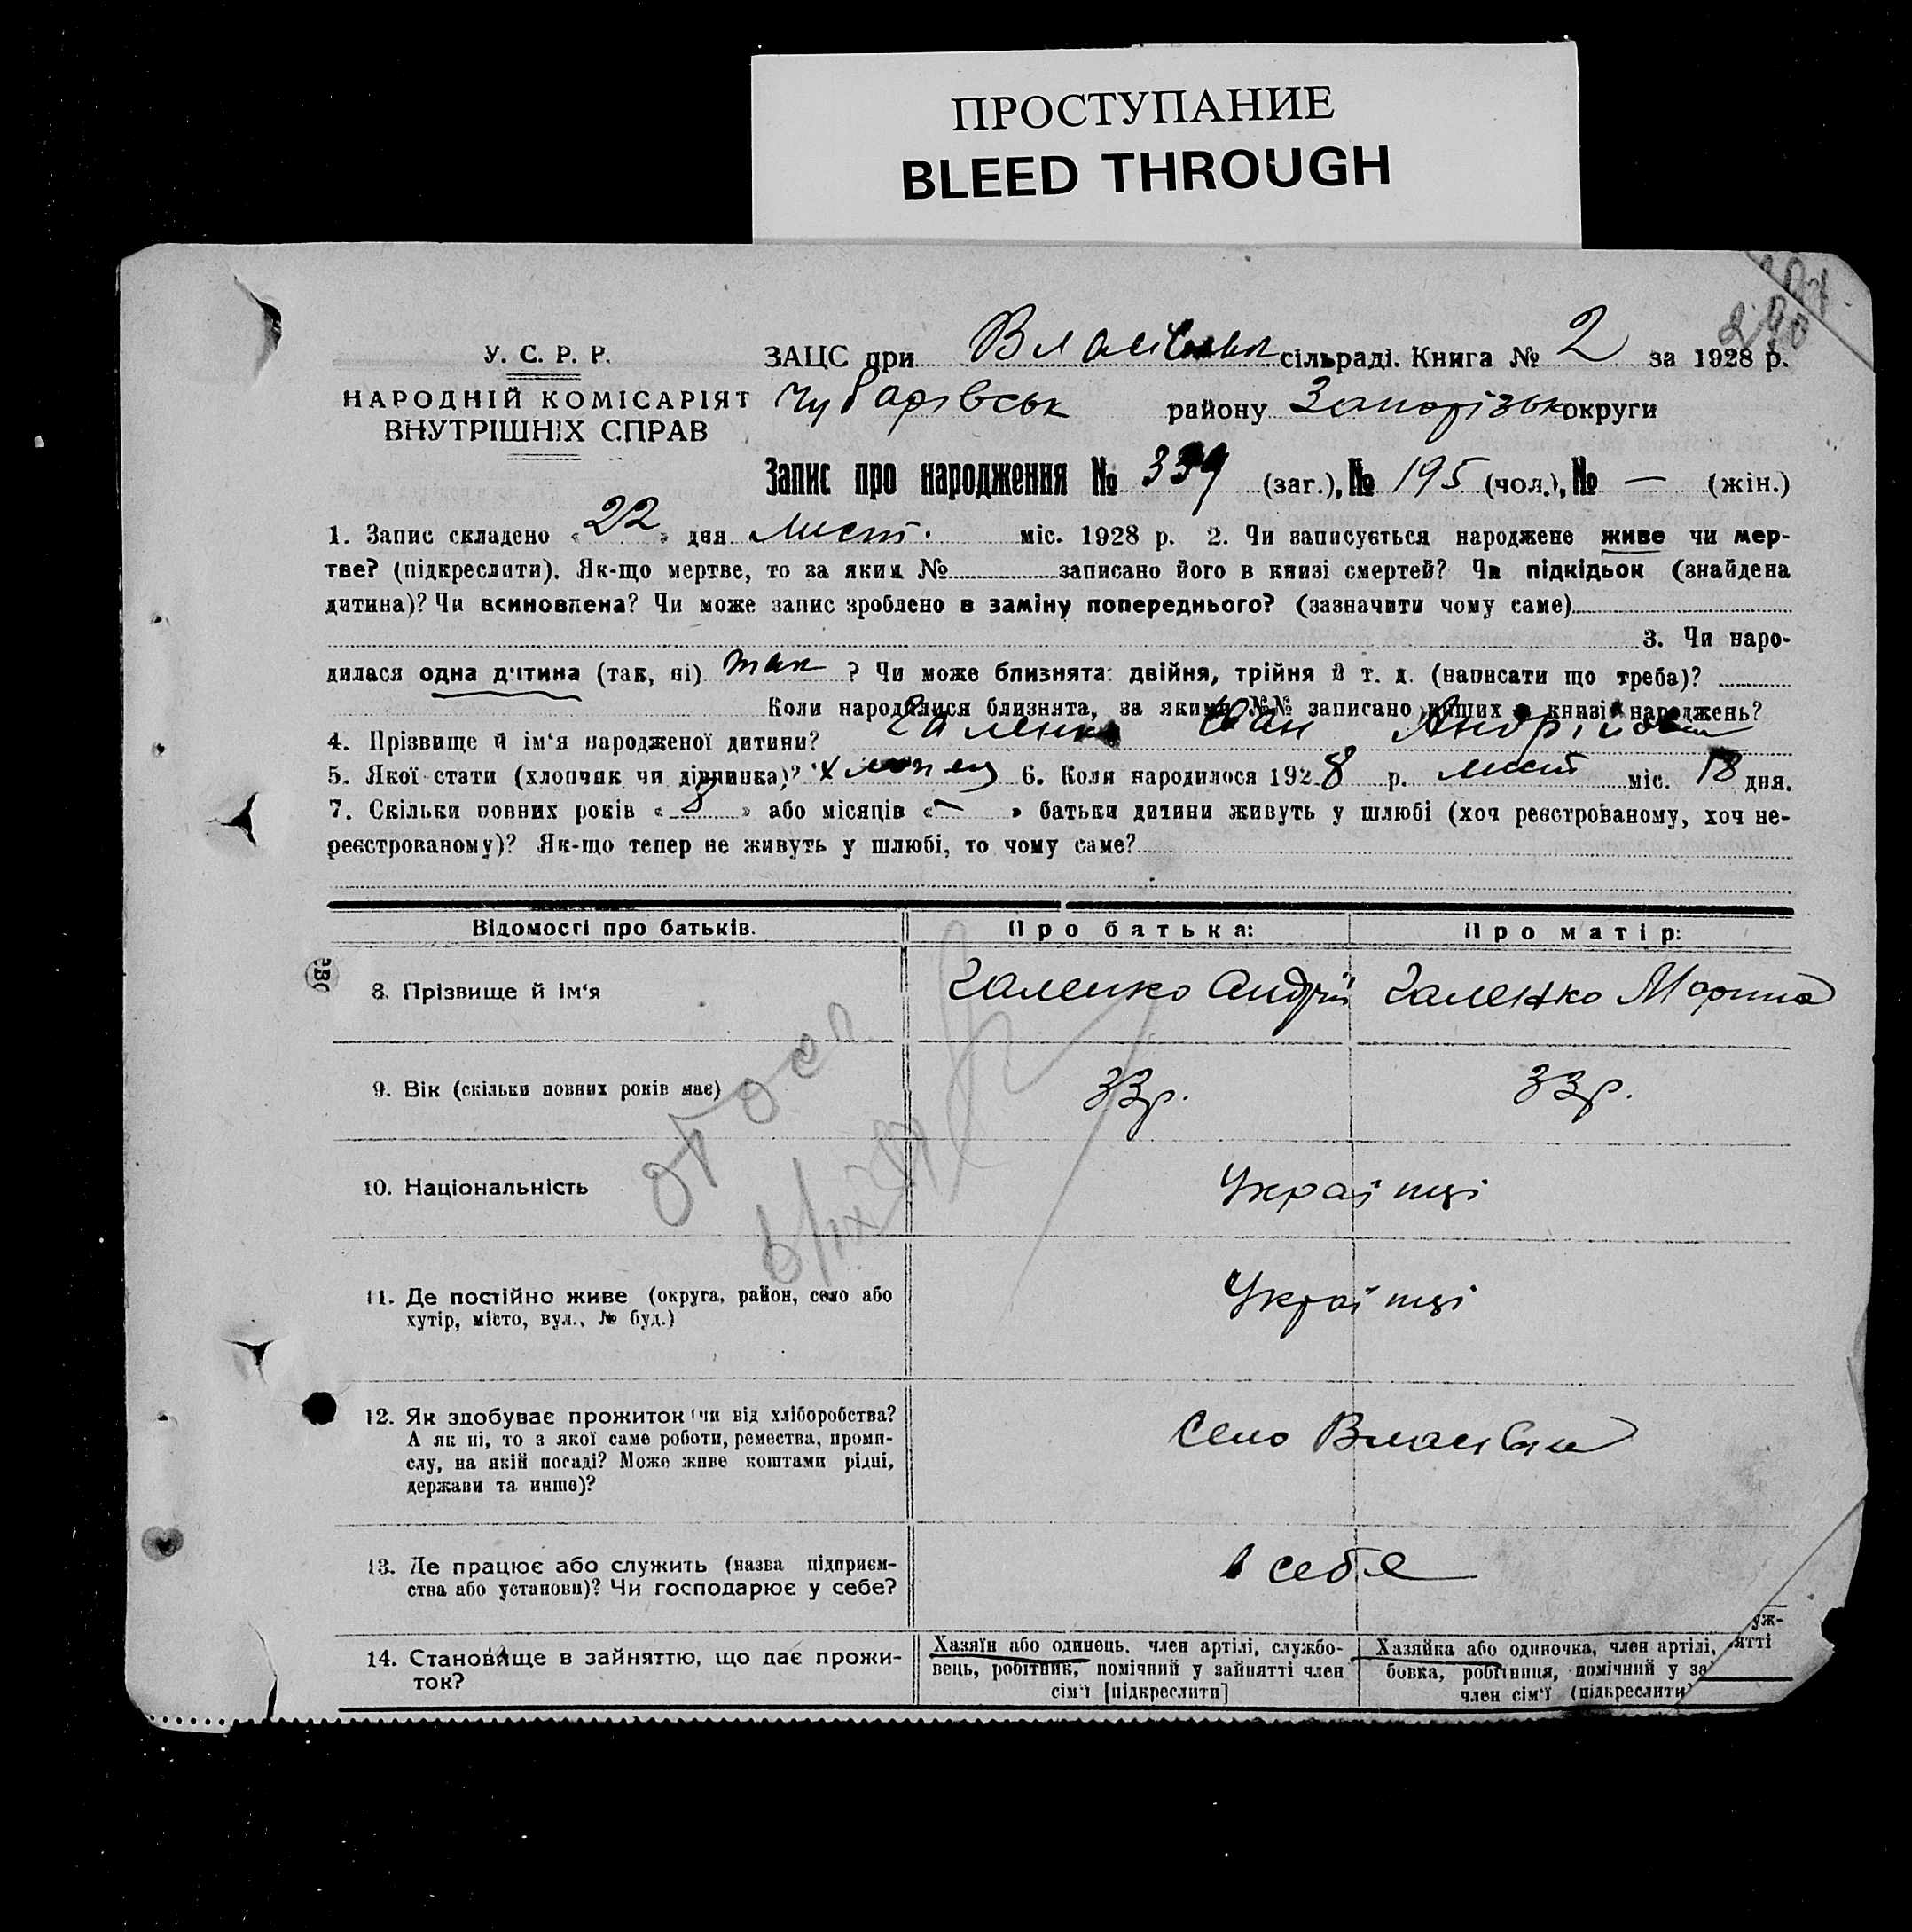 ПРОСТУПАНИЕ
BLEED THROUGH
У. С. Р. Р.
НАРОДНІЙ КОМІСАРІЯТ
ВНУТРІШНІХ СПРАВ
ЗАЦС при сільраді. Книга № 2 за 1928 р.
Чубарівськ району Запорізьк округи
Запис про народження № 339 (заг.), № 195 (чол.), № — (жін.)
1. Запис складено « 22 » дня лист. міс. 1928 р. 2. Чи записується народжене живе чи мер-
тве? (підкреслити). Як-що мертве, то за яким № записано його в книзі смертей? Чи підкідьок (знайдена
дитина)? Чи всиновлена? Чи може запис зроблено в заміну попереднього? (зазначити чому саме)
3. Чи наро-
дилася одна дитина (так, ні) так ? Чи може близнята: двійня, трійня й т. д. (написати що треба)?
Коли народилися близнята, за якими №№ записано инших в книзі народжень?
4. Прізвище й ім'я народженої дитини? Галенко Іван Андрійович
5. Якої стати (хлопчик чи дівчинка)? хлопец 6. Коли народилося 1928 р. лист міс. 18 дня.
7. Скільки повних років « 8 » або місяців « – » батьки дитини живуть у шлюбі (хоч реєстрованому, хоч не-
реєстрованому)? Як-що тепер не живуть у шлюбі, то чому саме?
Відомості про батьків. Про батька: Про матір:
8. Прізвище й ім'я Галенко Андрій Галенко Морина
9. Вік (скільки повних років має) 33р. 33р.
10. Національність Українці
11. Де постійно живе (округа, район, село або
хутір, місто, вул., № буд.) Українці
12. Як здобуває прожиток чи від хліборобства?
А як ні, то з якої саме роботи, ремества, проми-
слу, на якій посаді? Може живе коштами рідні,
держави та инше)?
Село
13. Де працює або служить (назва підприєм-
ства або установи)? Чи господарює у себе?
в себе
14. Становище в зайняттю, що дає прожи-
ток?
Хазяїн або одинець, член артілі, службо-
вець, робітник, помічний у зайнятті член
сім'ї [підкреслити]
Хазяйка або одиночка, член артілі,
бовка, робітниця, помічний у за
член сім'ї (підкреслити)
уж-
ятті